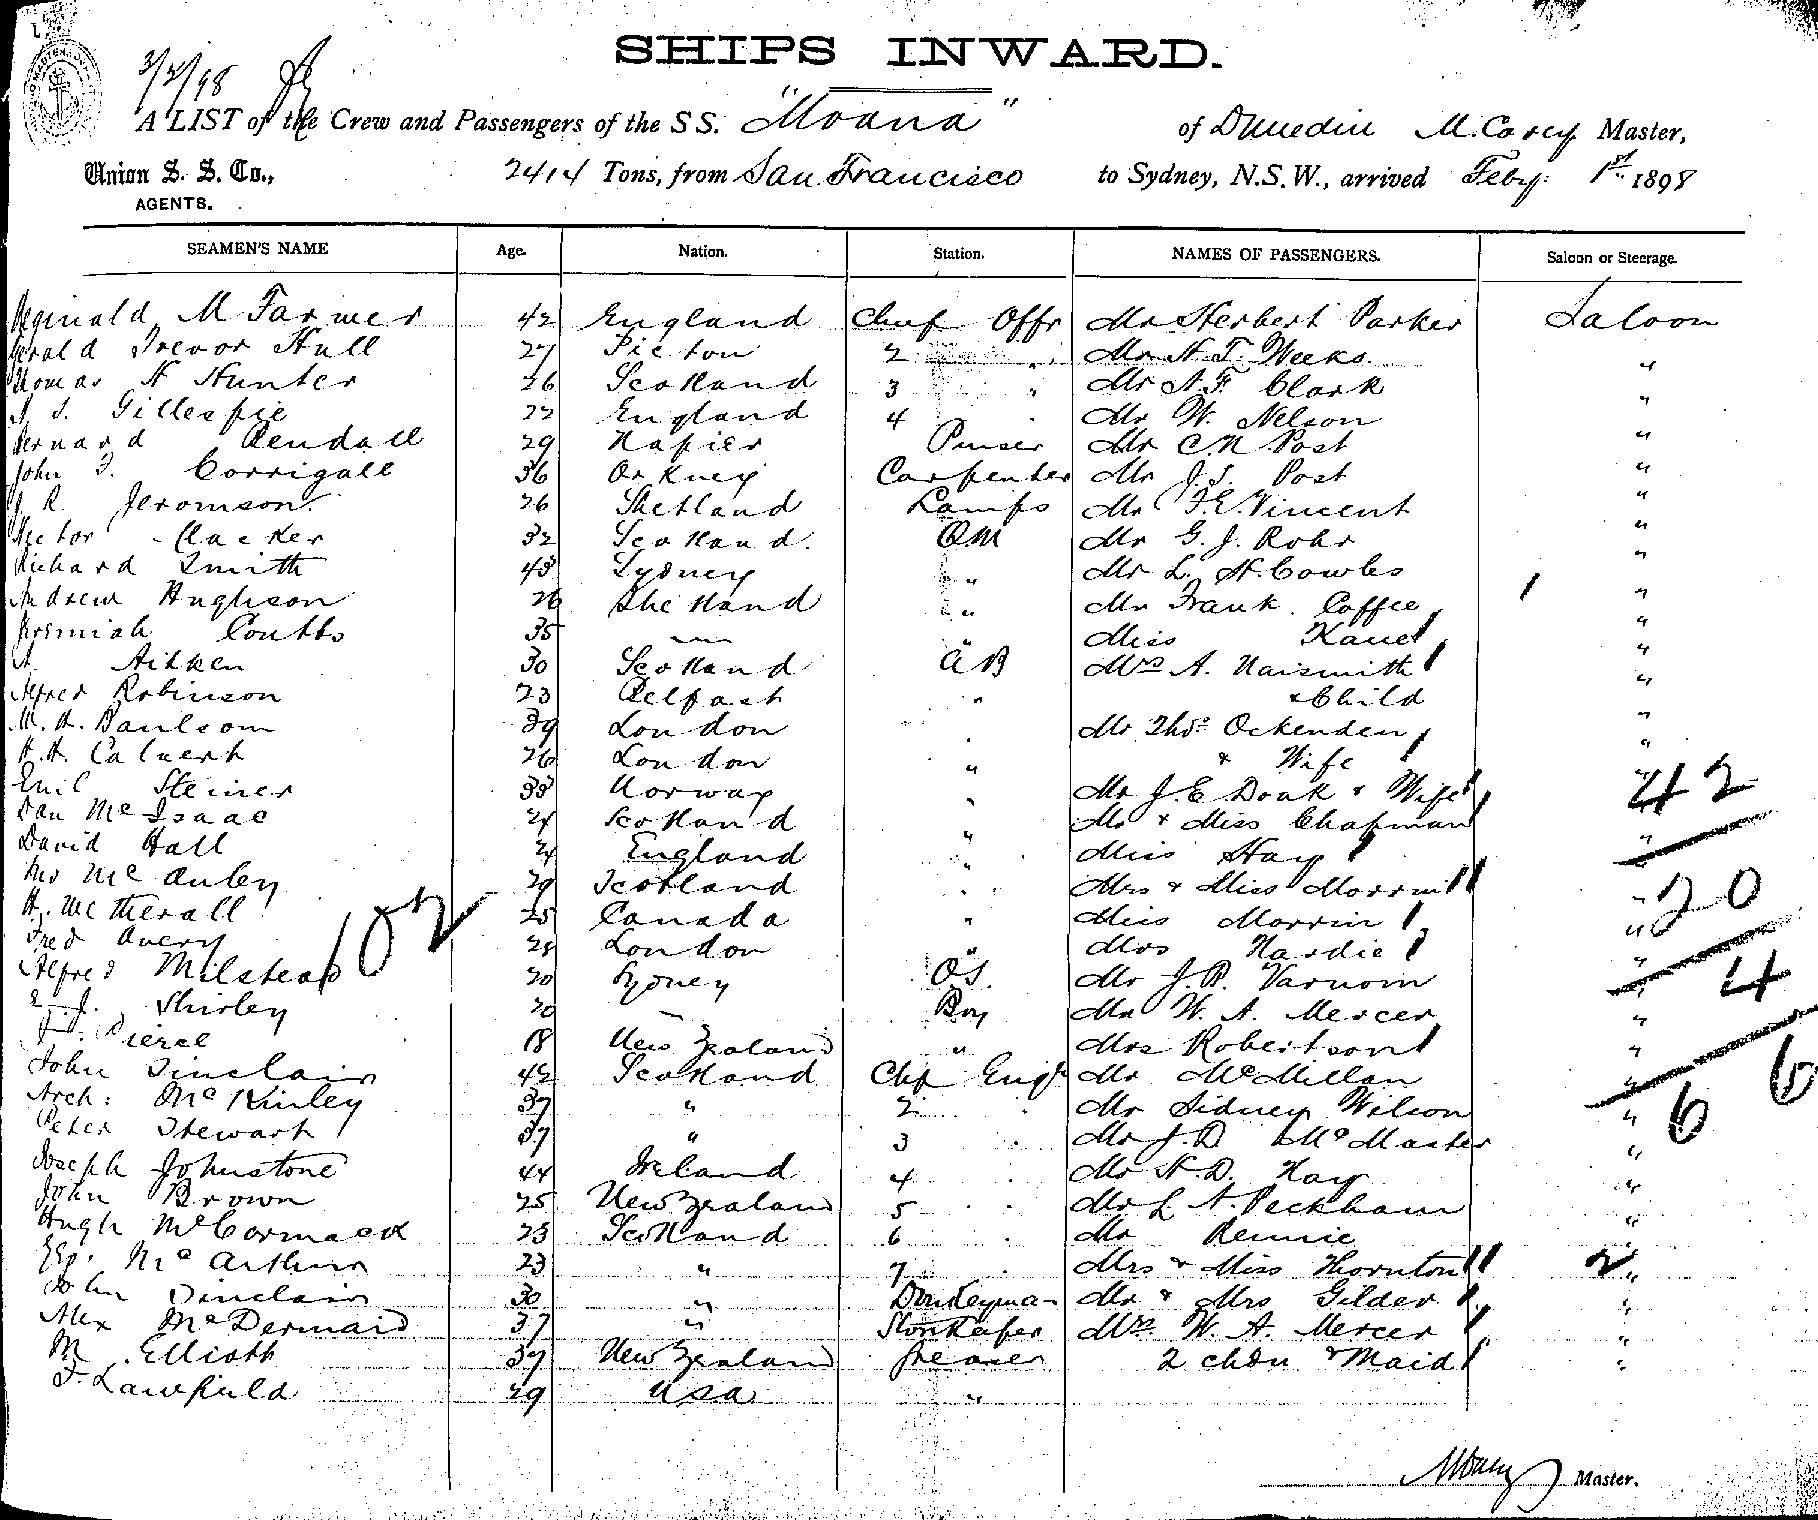 3/2/98
SHIPS INWARD.
A LIST of the Crew and Passengers of the SS. "Moana" of Dunedin M. Carey Master,
Union S. S. Co., 2414 Tons, from San Francisco to Sydney, N.S.W., arrived Feby: 1st 1898
AGENTS.
SEAMEN'S NAME Age. Nation. Station. NAMES OF PASSENGERS. Saloon or Steerage.
Reginald M Farmer 42 England Chief Offr Mr Herbert Parker Saloon
Gerald Trevor Hull 27 Picton 2 " Mr H. T. Weeks "
Thomas H Hunter 26 Scotland 3 " Mr A. F. Clark "
Gillespie 22 England 4 " Mr W. Nelson "
Bernard Rendall 29 Napier Purser Mr C N Post "
John T. Corrigall 36 Orkney Carpenter Mr J. S. Post "
J. R. Jeromson 26 Shetland Lamps Mr F. E. Vincent "
Hector 32 Scotland. QM Mr G. J. Rohr "
Richard Smith 43 Sydney " Mr L. H. Cowles "
Andrew Hughson 26 Shetland " Mr Frank. Coffee "
Jeremiah Coutts 35 " " Miss Kane "
A. Aitken 30 Scotland AB Mrs A. Naismith "
Alfred Robinson 23 Belfast " & Child "
W. H. Paulsom 39 London " Mr Thos. Ockenden "
H. H. Calvert 26 London " & Wife "
Emil Steiner 33 Norway " Mr J. E. Doak & Wife " 42
Dan McIsaac 24 Scotland " Mr & Miss Chapman "
David Hall 24 England " Miss Hay "
McAuley 29 Scotland " Mrs & Miss Morrin " 20
H. Wetherall 25 Canada " Miss Morrin "
Fred Avery 102 28 London " Mrs Hardie "
Alfred Milstead 20 Sydney OS. Mr J. R. Varnom " 4
E. J. Shirley 20 " Boy Mr W. A. Mercer "
Pierce 18 New Zealand " Mrs Robertson "
John Sinclair 42 Scotland Chf Engr Mr McMillan " 66
Arch: McKinley 37 " 2 " Mr Sidney Wilson "
Peter Stewart 37 " 3 " Mr J. D McMaster "
Joseph Johnstone 44 Ireland 4 " Mr H. D. Hay "
John Brown 25 New Zealand 5 " Mr L A. Peckham "
Hugh McCormack 23 Scotland 6 " Mr Rennie "
McArthur 23 " 7 " Mrs & Miss Thornton 2 "
John Sinclair 30 " Donkeyman Mr & Mrs Gilder "
Alex McDermaid 37 " Storekeeper Mrs. W. A. Mercer "
M. Elliott 37 New Zealand Greaser 2 chdn & Maid "
F. Lawfield 29 USA "
Master.